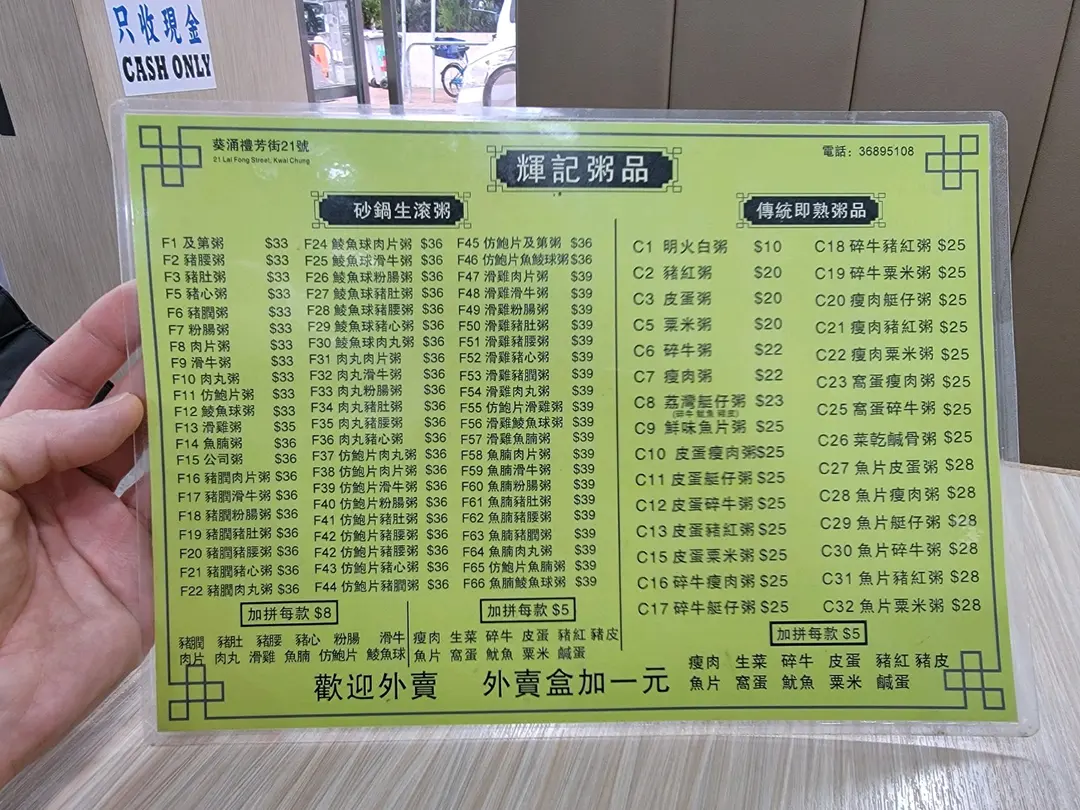 只收現金
CASH ONLY
葵涌禮芳街21號
21 Lai Fong Street, Kwai Chung
輝記粥品
電話：36895108
砂鍋生滚粥
F1 及第粥 $33
F2 豬腰粥 $33
F3 豬肚粥 $33
F5 豬心粥 $33
F6 豬膶粥 $33
F7 粉腸粥 $33
F8 肉片粥 $33
F9 滑牛粥 $33
F10 肉丸粥 $33
F11 仿鮑片粥 $33
F12 鯪魚球粥 $33
F13 滑雞粥 $35
F14 魚腩粥 $36
F15 公司粥 $36
F16 豬膶肉片粥 $36
F17 豬膶滑牛粥 $36
F18 豬膶粉腸粥 $36
F19 豬膶豬肚粥 $36
F20 豬膶豬腰粥 $36
F21 豬膶豬心粥 $36
F22 豬膶肉丸粥 $36
F24 鯪魚球肉片粥 $36
F25 鯪魚球滑牛粥 $36
F26 鯪魚球粉腸粥 $36
F27 鯪魚球豬肚粥 $36
F28 鯪魚球豬腰粥 $36
F29 鯪魚球豬心粥 $36
F30 鯪魚球肉丸粥 $36
F31 肉丸肉片粥 $36
F32 肉丸滑牛粥 $36
F33 肉丸粉腸粥 $36
F34 肉丸豬肚粥 $36
F35 肉丸豬腰粥 $36
F36 肉丸豬心粥 $36
F37 仿鮑片肉丸粥 $36
F38 仿鮑片肉片粥 $36
F39 仿鮑片滑牛粥 $36
F40 仿鮑片粉腸粥 $36
F41 仿鮑片豬肚粥 $36
F42 仿鮑片豬腰粥 $36
F42 仿鮑片豬腰粥 $36
F43 仿鮑片豬心粥 $36
F44 仿鮑片豬膶粥 $36
F45 仿鮑片及第粥 $36
F46 仿鮑片魚鯪球粥 $36
F47 滑雞肉片粥 $39
F48 滑雞滑牛粥 $39
F49 滑雞粉腸粥 $39
F50 滑雞豬肚粥 $39
F51 滑雞豬腰粥 $39
F52 滑雞豬心粥 $39
F53 滑雞豬膶粥 $39
F54 滑雞肉丸粥 $39
F55 仿鮑片滑雞粥 $39
F56 滑雞鯪魚球粥 $39
F57 滑雞魚腩粥 $39
F58 魚腩肉片粥 $39
F59 魚腩滑牛粥 $39
F60 魚腩粉腸粥 $39
F61 魚腩豬肚粥 $39
F62 魚腩豬腰粥 $39
F63 魚腩豬膶粥 $39
F64 魚腩肉丸粥 $39
F65 仿鮑片魚腩粥 $39
F66 魚腩鯪魚球粥 $39
加拼每款 $8
豬膶 豬肚 豬腰 豬心 粉腸 滑牛
肉片 肉丸 滑雞 魚腩 仿鮑片 鯪魚球
加拼每款 $5
瘦肉 生菜 碎牛 皮蛋 豬紅 豬皮
魚片 窩蛋 魷魚 粟米 鹹蛋
傳統即熟粥品
C1 明火白粥 $10
C2 豬紅粥 $20
C3 皮蛋粥 $20
C5 粟米粥 $20
C6 碎牛粥 $22
C7 瘦肉粥 $22
C8 荔灣艇仔粥 $23
(碎牛 魷魚 豬皮)
C9 鮮味魚片粥 $25
C10 皮蛋瘦肉粥 $25
C11 皮蛋艇仔粥 $25
C12 皮蛋碎牛粥 $25
C13 皮蛋豬紅粥 $25
C15 皮蛋粟米粥 $25
C16 碎牛瘦肉粥 $25
C17 碎牛艇仔粥 $25
C18 碎牛豬紅粥 $25
C19 碎牛粟米粥 $25
C20 瘦肉艇仔粥 $25
C21 瘦肉豬紅粥 $25
C22 瘦肉粟米粥 $25
C23 窩蛋瘦肉粥 $25
C25 窩蛋碎牛粥 $25
C26 菜乾鹹骨粥 $25
C27 魚片皮蛋粥 $28
C28 魚片瘦肉粥 $28
C29 魚片艇仔粥 $28
C30 魚片碎牛粥 $28
C31 魚片豬紅粥 $28
C32 魚片粟米粥 $28
加拼每款 $5
瘦肉 生菜 碎牛 皮蛋 豬紅 豬皮
魚片 窩蛋 魷魚 粟米 鹹蛋
歡迎外賣 外賣盒加一元